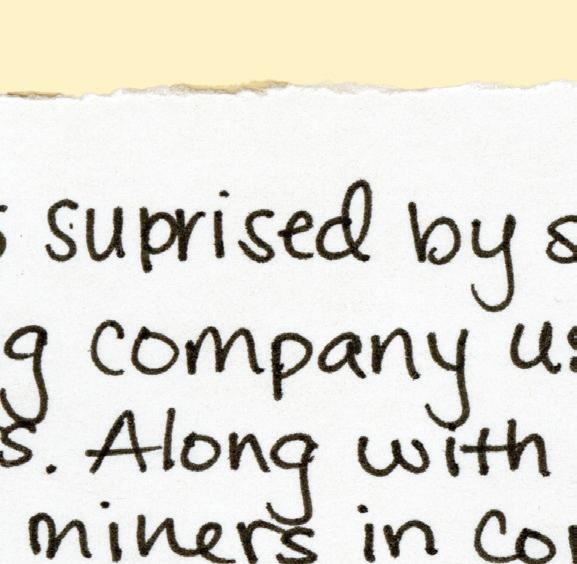 suprised by
company
Along with
miners in